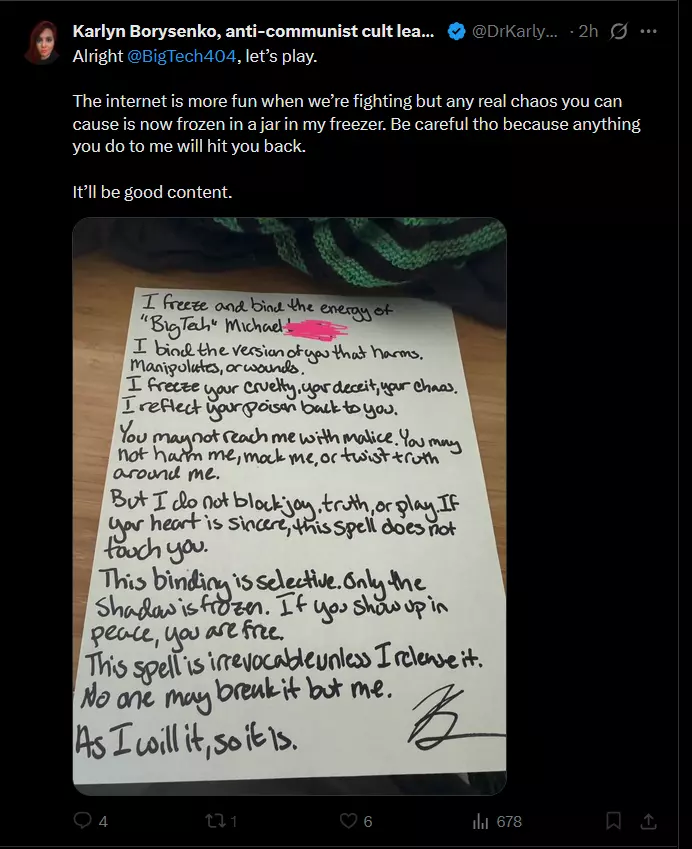 Karlyn Borysenko, anti-communist cult lea... @DrKarly... · 2h
Alright @BigTech404, let's play.
The internet is more fun when we're fighting but any real chaos you can
cause is now frozen in a jar in my freezer. Be careful tho because anything
you do to me will hit you back.
It'll be good content.
I freeze and bind the energy of
"BigTech" Michael
I bind the version of you that harms,
Manipulates, or wounds.
I freeze your cruelty, your deceit, your chaos.
I reflect your poison back to you.
You may not reach me with malice. You may
not harm me, mock me, or twist truth
around me.
But I do not block joy, truth, or play. If
your heart is sincere, this spell does not
touch you.
This binding is selective. Only the
Shadow is frozen. If you show up in
peace, you are free.
This spell is irrevocable unless I release it.
No one may break it but me.
As I will it, so it is.
4 1 6 678